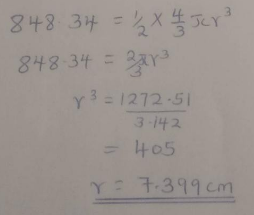 848·34 = 1/2 × 4/3 πr³
848·34 = 2/3 πr³
r³ = 1272·51 / 3·142
= 405
r = 7·399cm